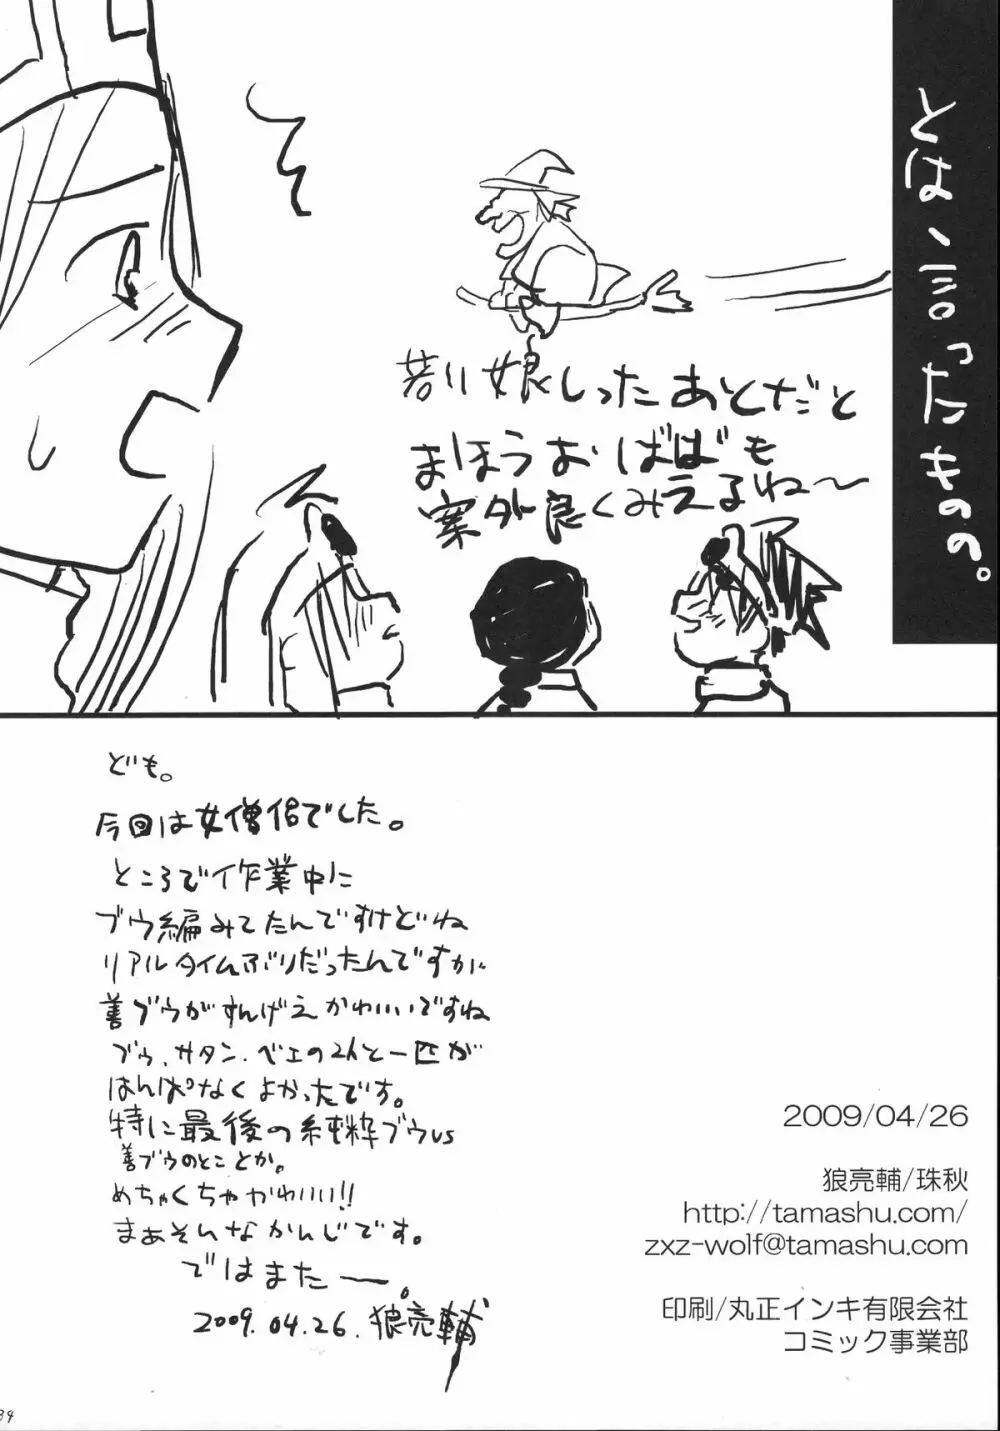 とは、言ったものの。
若い娘しったあとだと
まほうおばばも
案外良くみえるね〜
ども。
今回は女僧侶でした。
ところで作業中に
ブウ編みてたんですけどね
リアルタイムぶりだったんですが
善ブウがすんげえかわいいですね
ブゥ、サタン、ベエの2人と一匹が
はんぱなくよかったです。
特に最後の純粋ブウvs
善ブウのとことか。
めちゃくちゃかわいい!!
まぁそんなかんじです。
ではまたー。
2009.04.26.狼亮輔
2009/04/26
狼亮輔/珠秋
http://tamashu.com/
zxz-wolf@tamashu.com
印刷/丸正インキ有限会社
コミック事業部
34